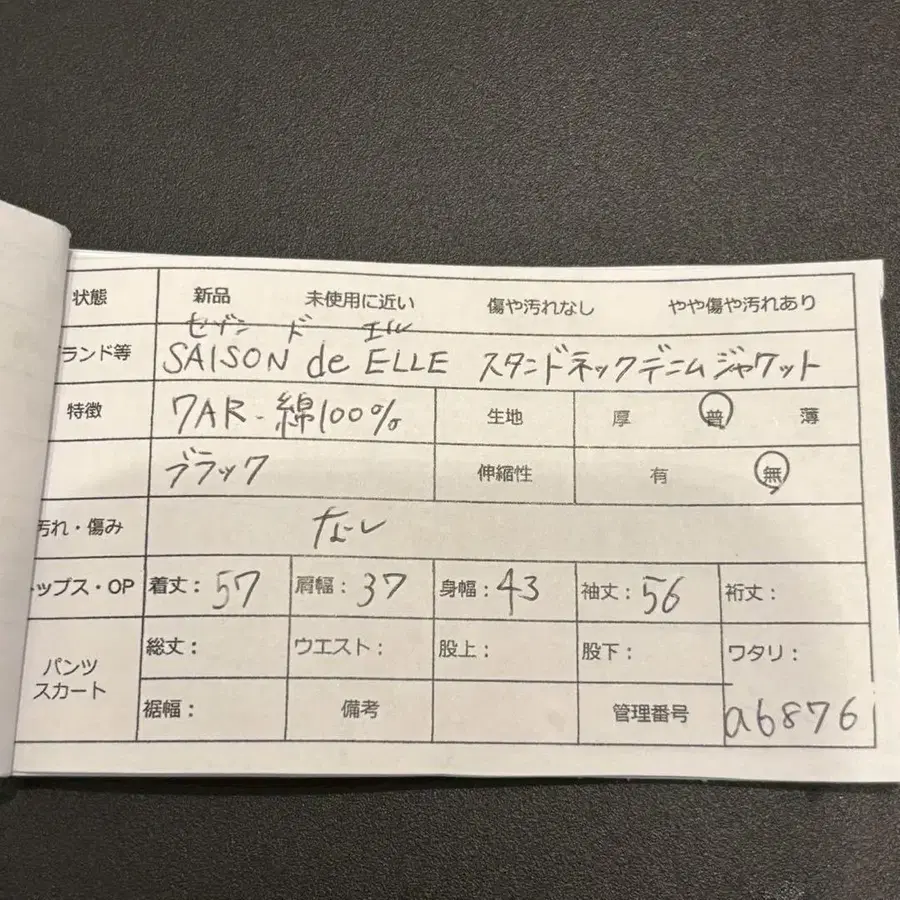 状態 新品 未使用に近い 傷や汚れなし やや傷や汚れあり
セゾン ド エル
ランド等 SAISON de ELLE スタンドネックデニムジャケット
特徴 7AR-綿100% 生地 厚 普 薄
ブラック 伸縮性 有 無
汚れ・傷み なし
ップス・OP 着丈:57 肩幅:37 身幅:43 袖丈:56 裄丈:
パンツ スカート 総丈: ウエスト: 股上: 股下: ワタリ:
裾幅: 備考 管理番号 a6876